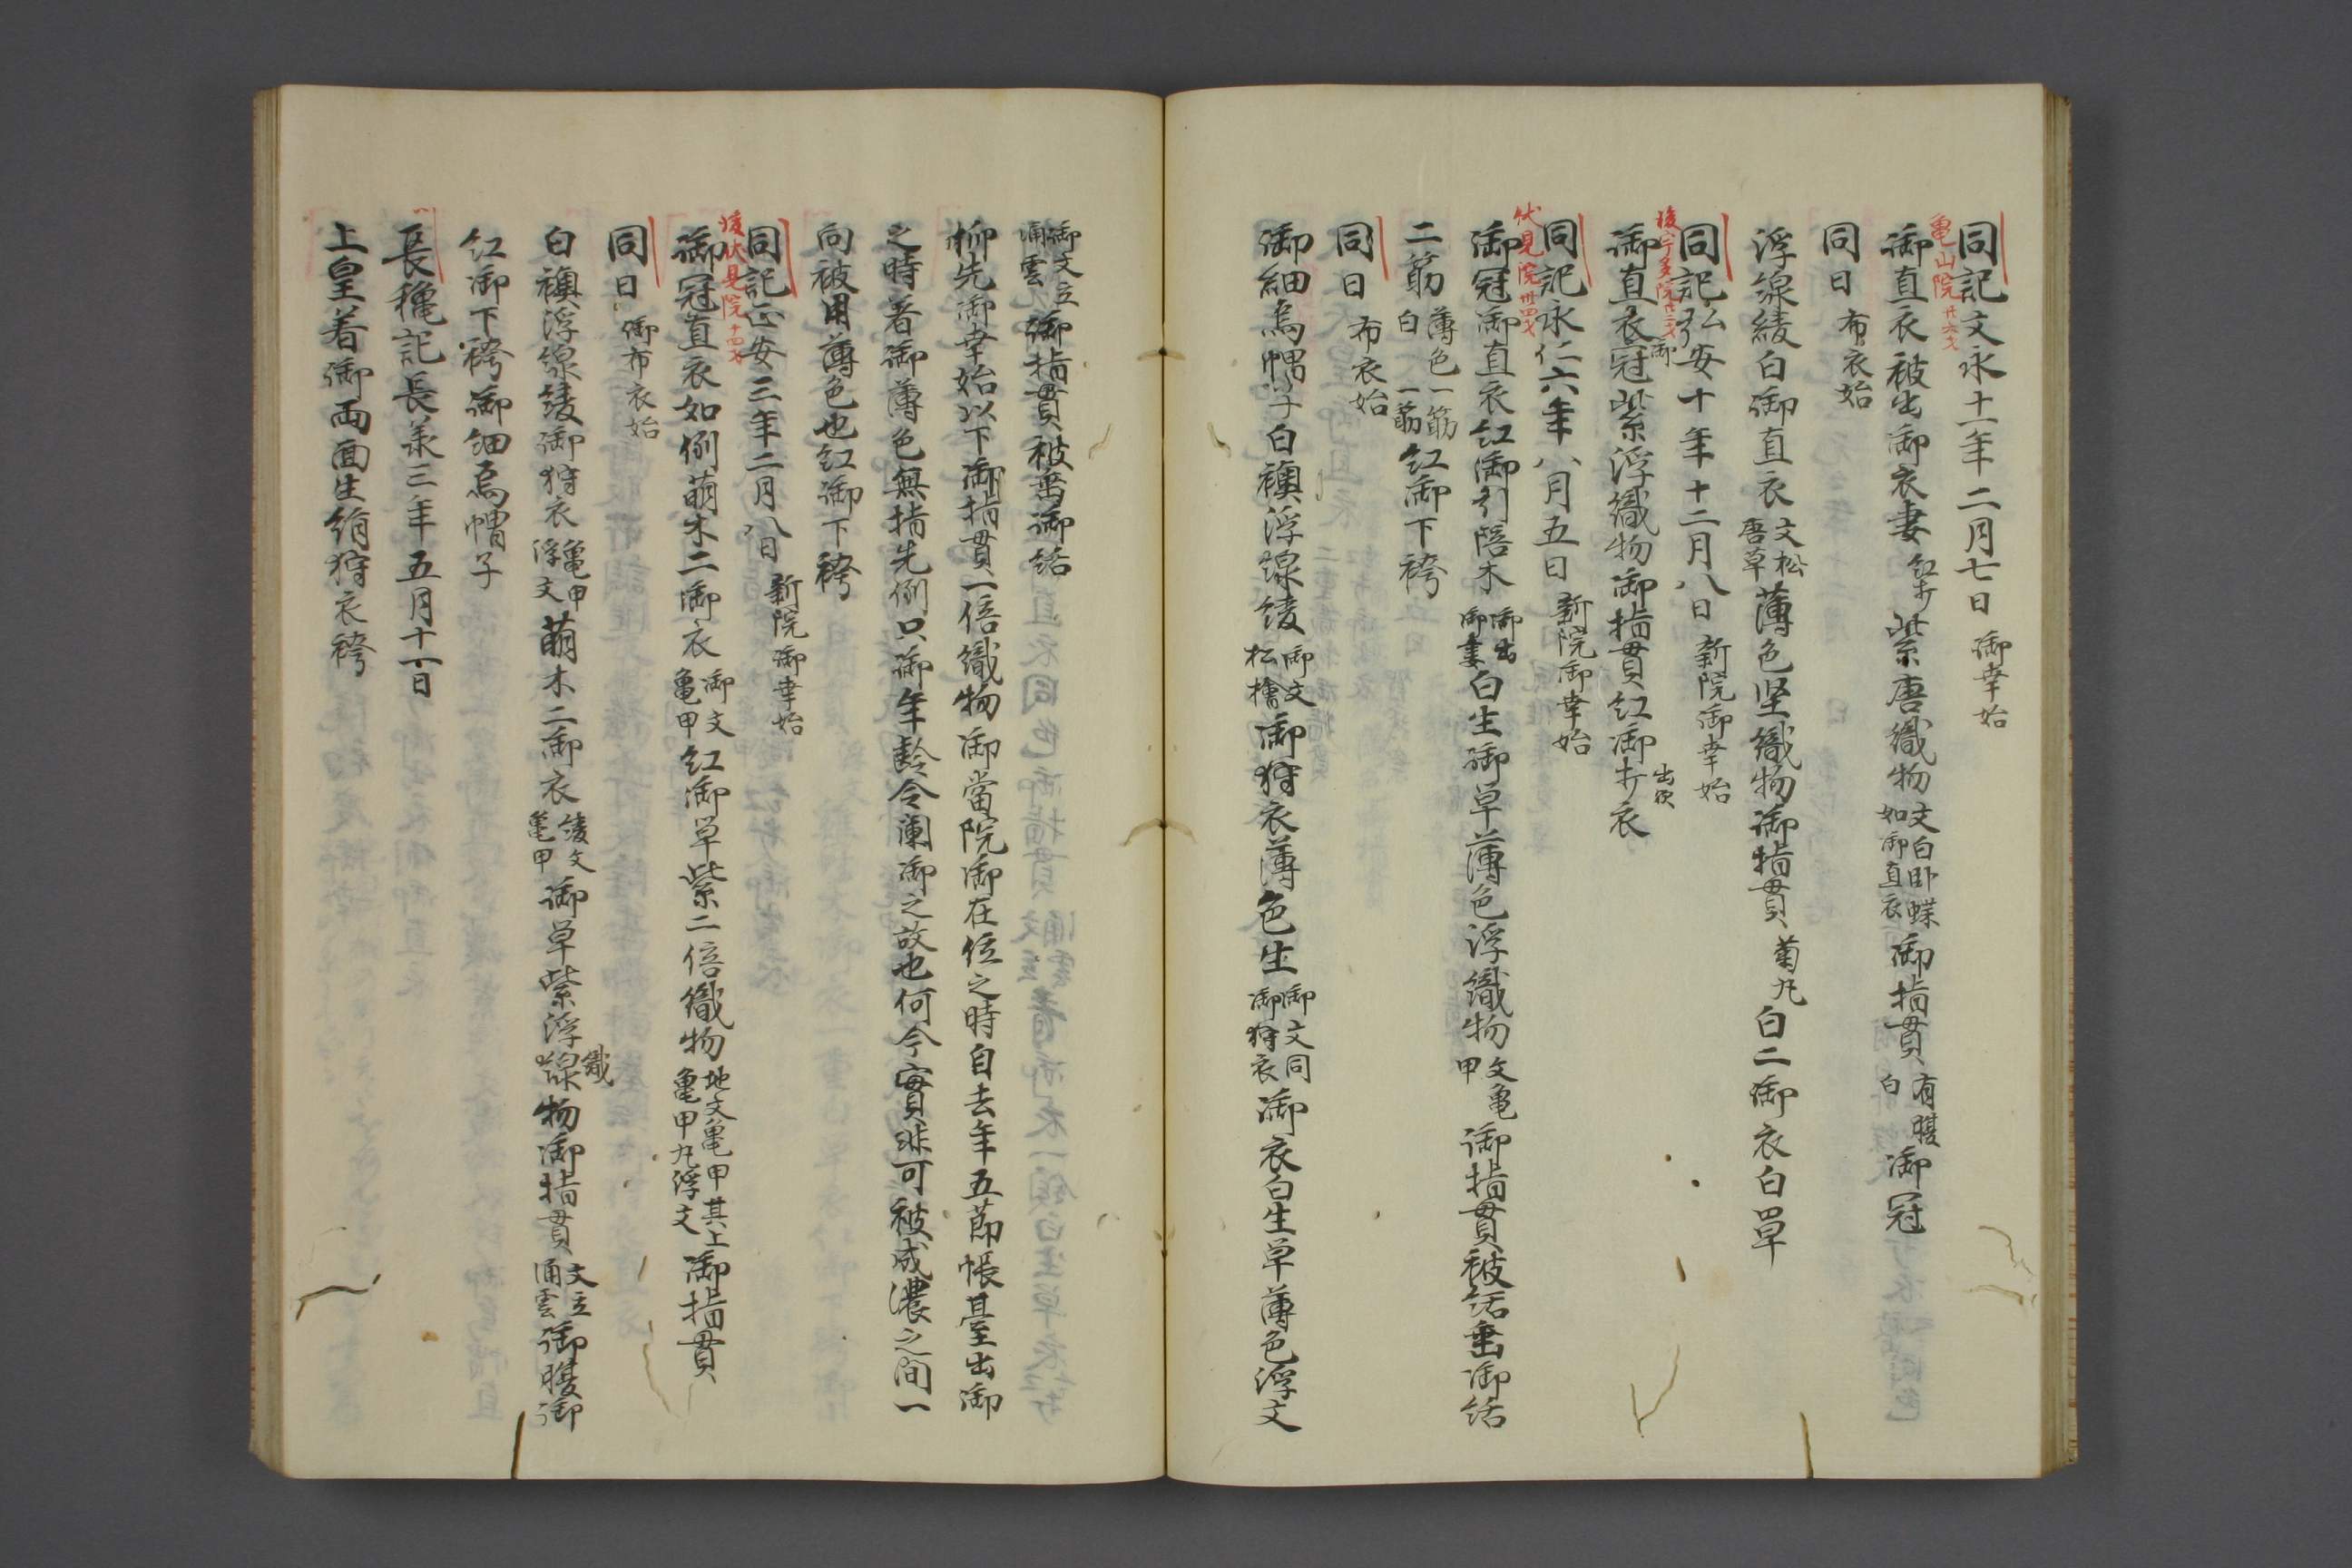 同記文永十一年二月七日 御幸始
亀山院廿六才
御直衣被出御衣妻 紅打 紫唐織物 文白臥蝶 如御直衣 御指貫 有腹 白 御冠
同日 布衣始
浮線綾白御直衣 文松 唐草 薄色堅織物御指貫 菊丸 白二御衣白単
同記弘安十年十二月八日 新院御幸始
後宇多院廿二才
御直衣御冠紫浮織物御指貫紅御打衣 出衣
同記永仁六年八月五日 新院御幸始
伏見院卅四才
御冠御直衣紅御引陪木 御出 御妻 白生御単薄色浮織物 文亀 甲 御指貫被括垂御括
二筋 薄色一筋 白一筋 紅御下袴
同日 布衣始
御細烏帽子白襖浮線綾 御文 松檜 御狩衣薄色生 御文同 御狩衣 御衣白生単薄色浮文
御文立 涌雲 御指貫被垂御括
抑先御幸始以下御指貫一倍織物御當院御在位之時自去年五節帳臺出御
之時着御薄色無指先例只御年齢令闌御之故也何今實非可被成濃之間一
向被用薄色也紅御下袴
同記正安三年二月八日 新院御幸始
後伏見院十四才
御冠直衣如例萌木二御衣 御文 亀甲 紅御単紫二倍織物 地文亀甲其上 亀甲丸浮文 御指貫
同日 御布衣始
白襖浮線綾御狩衣 亀甲 浮文 萌木二御衣 綾文 亀甲 御単紫浮線織物御指貫 文立 涌雲 御腹御
紅御下袴御細烏帽子
長秋記長承三年五月十一日
上皇着御両面生絹狩衣袴